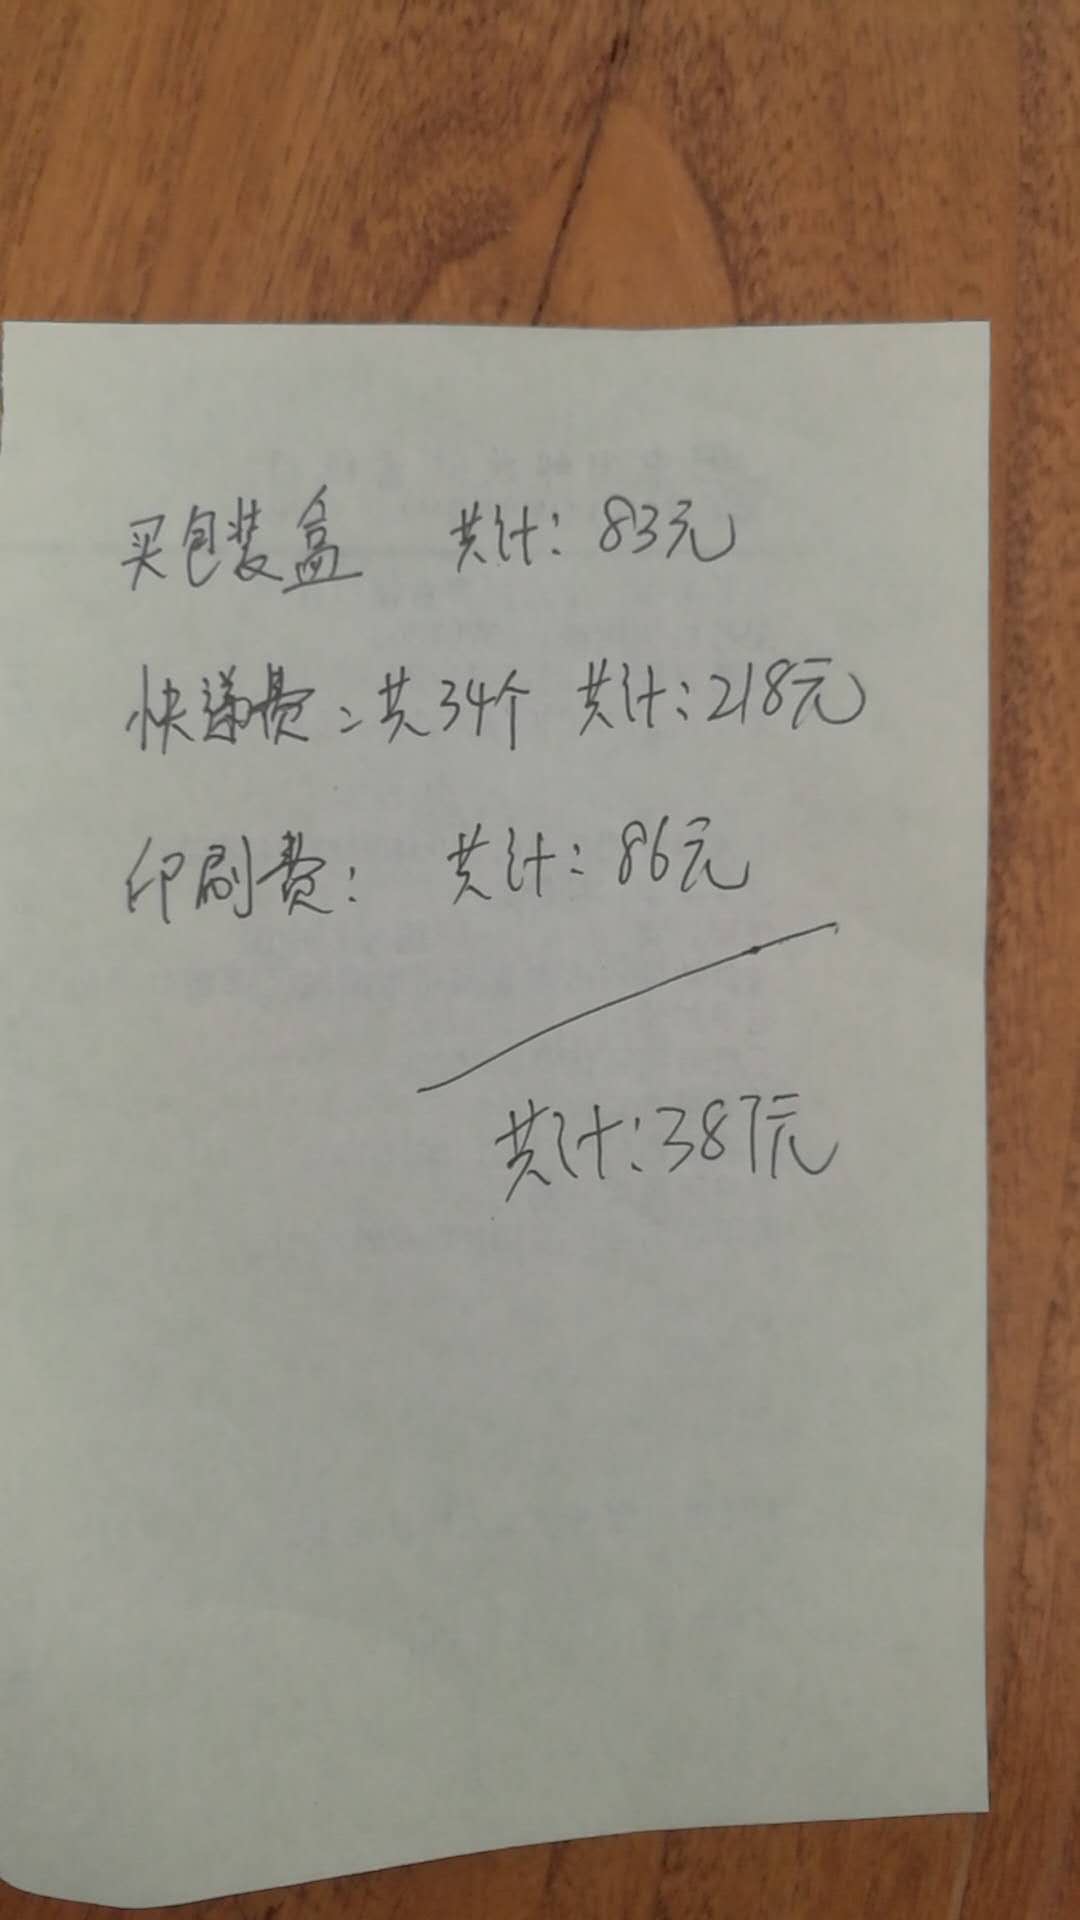 买包装盒 共计：83元
快递费：共34个 共计：218元
印刷费： 共计：86元
共计：387元